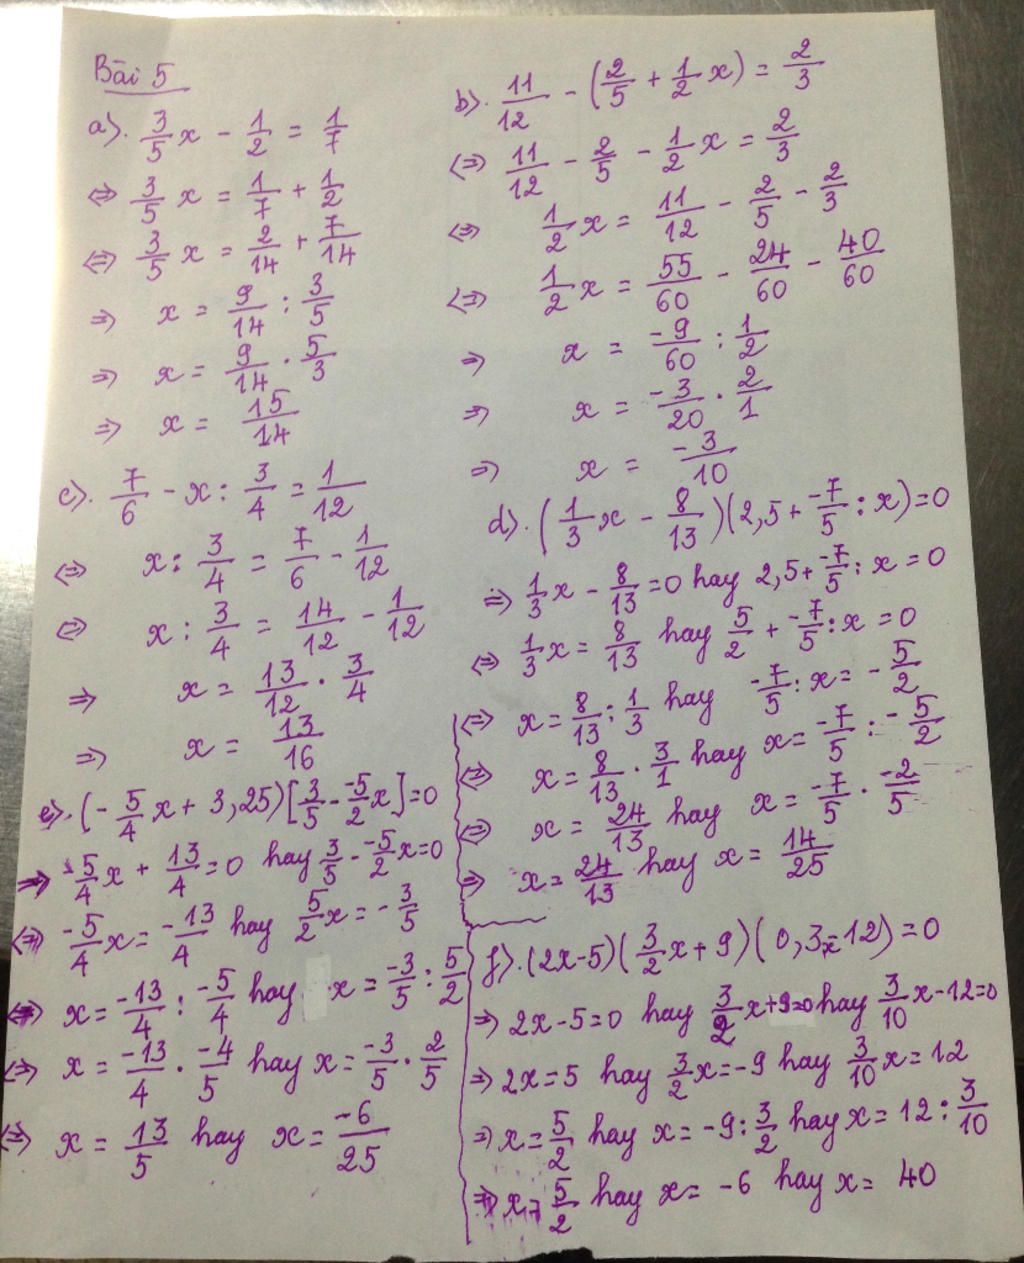 Bài 5
a). 3/5 x - 1/2 = 1/7
⇔ 3/5 x = 1/7 + 1/2
⇔ 3/5 x = 2/14 + 7/14
⇒ x = 9/14 : 3/5
⇒ x = 9/14 . 5/3
⇒ x = 15/14
b). 11/12 - (2/5 + 1/2 x) = 2/3
⇔ 11/12 - 2/5 - 1/2 x = 2/3
⇔ 1/2 x = 11/12 - 2/5 - 2/3
⇔ 1/2 x = 55/60 - 24/60 - 40/60
⇒ x = -9/60 : 1/2
⇒ x = -3/20 . 2/1
⇒ x = -3/10
c). 7/6 - x : 3/4 = 1/12
⇔ x : 3/4 = 7/6 - 1/12
⇔ x : 3/4 = 14/12 - 1/12
⇒ x = 13/12 . 3/4
⇒ x = 13/16
d). (1/3 x - 8/13)(2,5 + -7/5 : x) = 0
⇒ 1/3 x - 8/13 = 0 hay 2,5 + -7/5 : x = 0
⇔ 1/3 x = 8/13 hay 5/2 + -7/5 : x = 0
⇔ x = 8/13 : 1/3 hay -7/5 : x = - 5/2
⇔ x = 8/13 . 3/1 hay x = -7/5 : - 5/2
⇔ x = 24/13 hay x = -7/5 . -2/5
⇒ x = 24/13 hay x = 14/25
e). (- 5/4 x + 3,25)[3/5 - -5/2 x] = 0
⇒ -5/4 x + 13/4 = 0 hay 3/5 - -5/2 x = 0
⇔ -5/4 x = -13/4 hay 5/2 x = - 3/5
⇔ x = -13/4 : -5/4 hay x = -3/5 : 5/2
⇔ x = -13/4 . -4/5 hay x = -3/5 . 2/5
⇔ x = 13/5 hay x = -6/25
f). (2x-5)(3/2 x + 9)(0,3x-12) = 0
⇒ 2x-5=0 hay 3/2 x+9=0 hay 3/10 x-12=0
⇒ 2x=5 hay 3/2 x=-9 hay 3/10 x = 12
⇒ x = 5/2 hay x = -9 : 3/2 hay x = 12 : 3/10
⇒ x = 5/2 hay x = -6 hay x = 40